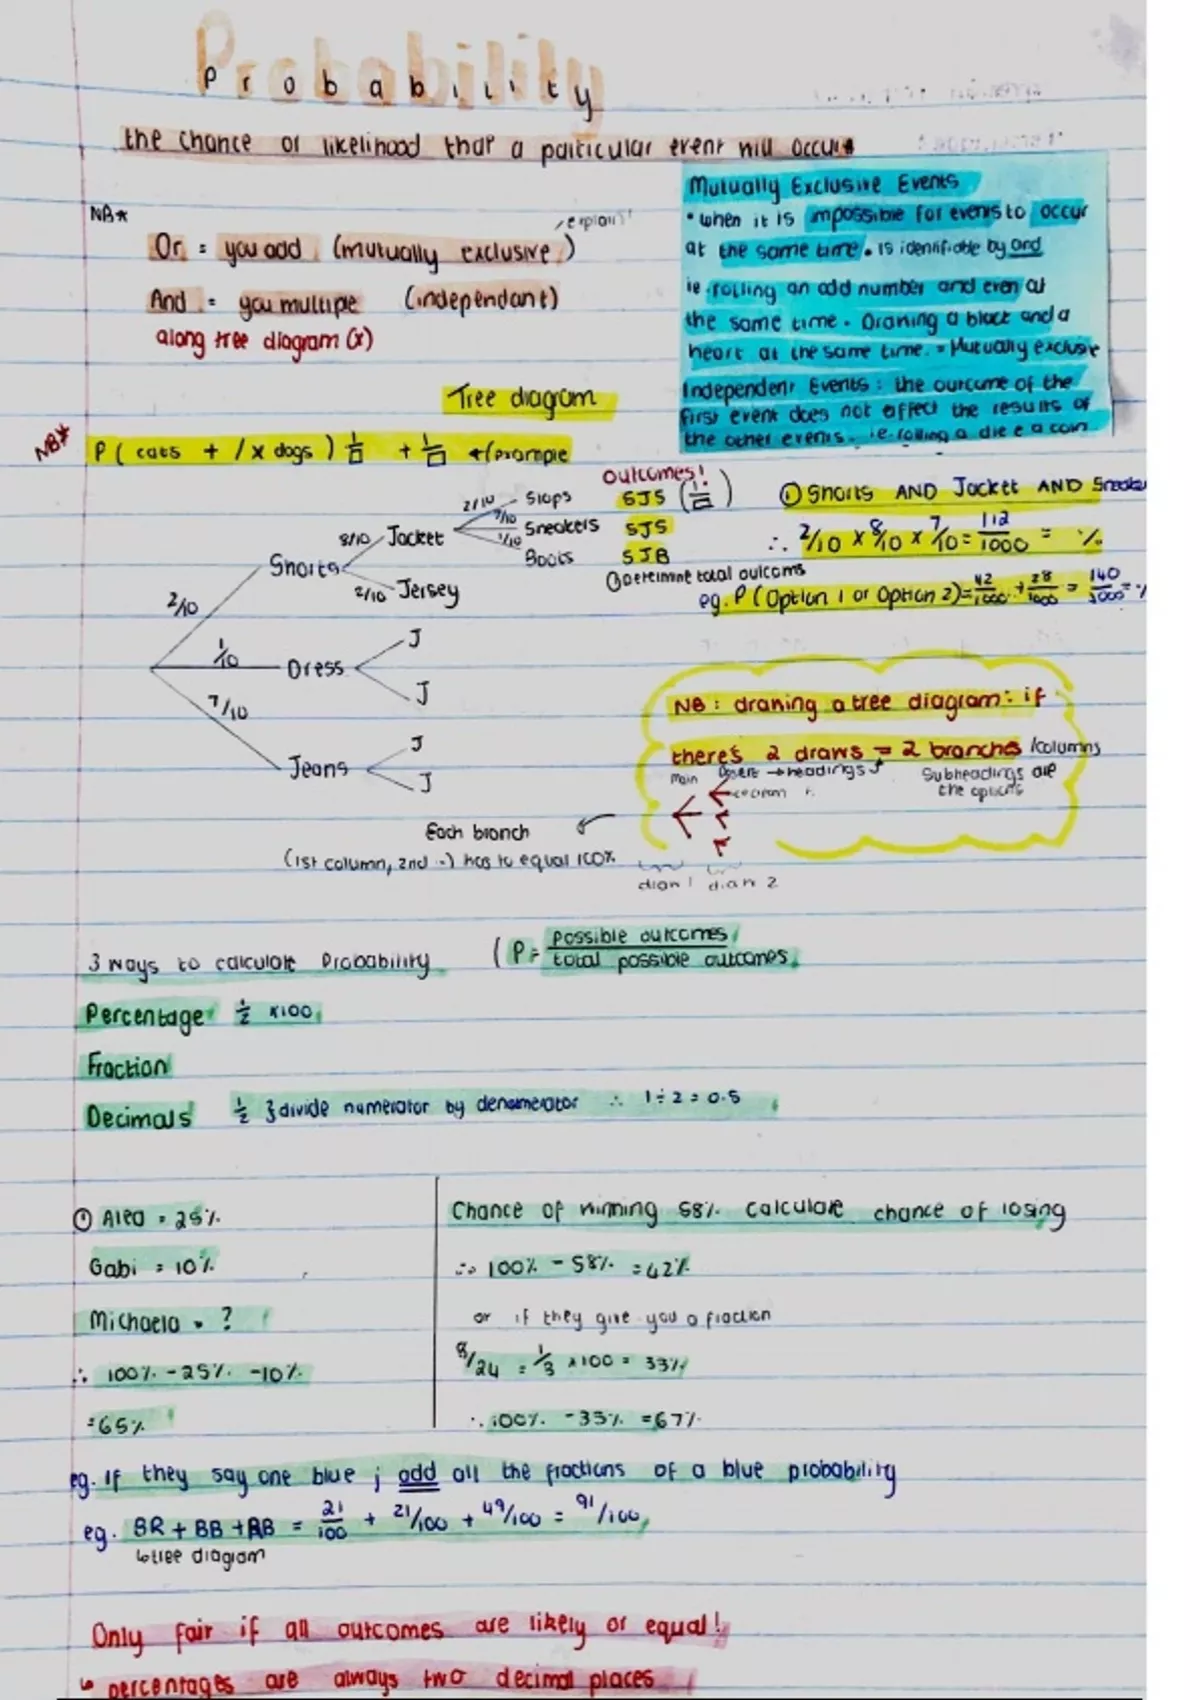 Probability
the chance or likelihood that a particular event will occur
NB*
explain!
Or = you add (mutually exclusive)
And = you multiple (independant)
along tree diagram (x)
Mutually Exclusive Events
• when it is impossible for events to occur
at the same time. is identifiable by and
ie. rolling an odd number and even at
the same time. Drawing a black and a
heart at the same time. = Mutually exclusive
Independent Events: the outcome of the
first event does not effect the results of
the other events. ie. rolling a die & a coin
Tree diagram
NB*
P( cats + / x dogs ) 1/□ + 1/□ (example
outcomes!
SJS (1/□)
SJS
SJB
2/10 Slops
7/10 Sneakers
1/10 Boots
8/10 Jacket
2/10 Jersey
2/10 Shorts
1/10 Dress
J
J
7/10 Jeans
J
J
① Shorts AND Jacket AND Sneake
∴ 2/10 x 8/10 x 7/10 = 112/1000 = %
determine total outcoms
eg. P(Option 1 or Option 2) = 42/1000 + 28/1000 = 140/1000 =
NB: drawing a tree diagram: if
there's 2 draws = 2 branches /columns
Main → headings
Subheadings are
the options
draw 1 draw 2
Each branch
(1st column, 2nd ..) has to equal 100%
3 ways to calculate Probability (P = possible outcomes / total possible outcomes
Percentage 1/2 x100
Fraction
Decimals 1/2 } divide numerator by denomerator ∴ 1÷2=0.5
① Alea = 25%
Gabi = 10%
Michaela = ?
∴ 100% - 25% - 10%
= 65%
Chance of winning 58% calculate chance of losing
∴ 100% - 58% = 42%
or if they give you a fraction
8/24 = 1/3 x100 = 33%
∴ 100% - 33% = 67%
eg. If they say one blue ; add all the fractions of a blue probability
eg. BR + BB + RB = 21/100 + 21/100 + 49/100 = 91/100
↳ tree diagram
Only fair if all outcomes are likely or equal!
↳ percentages are always two decimal places